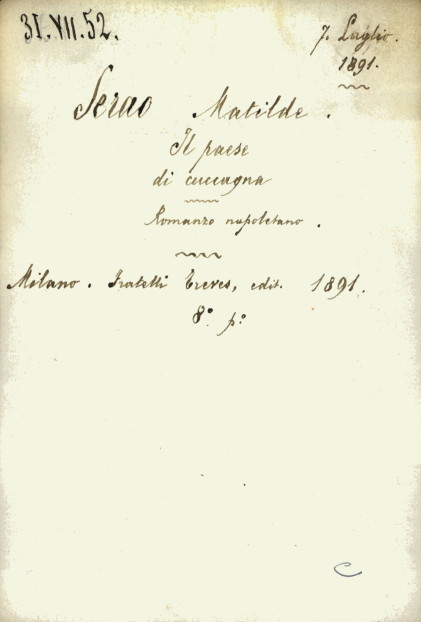 31.VII.52.
7. Luglio.
1891.
Serao Matilde.
Il paese
di cuccagna
Romanzo napoletano.
Milano. Fratelli Treves, edit. 1891.
8.° p.°
C